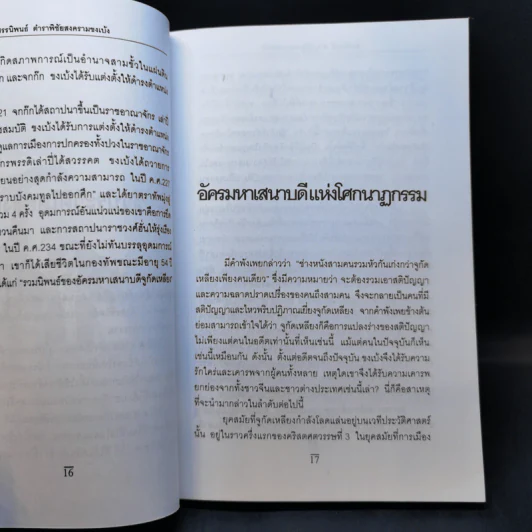 รรนิพนธ์ ตำราพิชัยสงครามขงเบ้ง
กิดสภาพการณ์เป็นอำนาจสามขั้วในแผ่นดิน
ก และจกก๊ก ขงเบ้งได้รับแต่งตั้งให้ดำรงตำแหน่ง
21 จกก๊กได้สถาปนาขึ้นเป็นราชอาณาจักร เล่าปี่
สมบัติ ขงเบ้งได้รับการแต่งตั้งให้ดำรงตำแหน่ง
ดูแลการเมืองการปกครองทั้งปวงในราชอาณาจักร
กรพรรดิเล่าปี่ได้สวรรคต ขงเบ้งได้ถวายการ
ยนอย่างสุดกำลังความสามารถ ในปี ค.ศ.227
ราบบังคมทูลไปออกศึก" และได้ยาตราทัพมุ่งสู่
วม 4 ครั้ง อุดมการณ์อันแน่วแน่ของเขาคือการยึด
วนคืนมา และการสถาปนาราชวงศ์ฮั่นให้รุ่งเรือง
ในปี ค.ศ.234 ขณะที่ยังไม่ทันบรรลุอุดมการณ์
เขาก็ได้เสียชีวิตในกองทัพขณะมีอายุ 54 ปี
ได้แก่ "รวมนิพนธ์ของอัครมหาเสนาบดีจูกัดเหลียง"
16
อัครมหาเสนาบดีแห่งโศกนาฏกรรม
มีคำพังเพยกล่าวว่า "ช่างหนังสามคนรวมหัวกันเก่งกว่าจูกัด
เหลียงเพียงคนเดียว" ซึ่งมีความหมายว่า จะต้องรวมเอาสติปัญญา
และความฉลาดปราดเปรื่องของคนถึงสามคน จึงจะกลายเป็นคนที่มี
สติปัญญาและไหวพริบปฏิภาณเยี่ยงจูกัดเหลียง จากคำพังเพยข้างต้น
ย่อมสามารถเข้าใจได้ว่า จูกัดเหลียงก็คือการแปลงร่างของสติปัญญา
ไม่เพียงแต่คนในอดีตเท่านั้นที่เห็นเช่นนี้ แม้แต่คนในปัจจุบันก็เห็น
เช่นนี้เหมือนกัน ดังนั้น ตั้งแต่อดีตจนถึงปัจจุบัน ขงเบ้งจึงได้รับความ
รักใคร่และเคารพจากผู้คนทั้งหลาย เหตุใดเขาจึงได้รับความเคารพ
ยกย่องจากทั้งชาวจีนและชาวต่างประเทศเช่นนี้เล่า? นี่ก็คือสาเหตุ
ที่จะนำมากล่าวในลำดับต่อไปนี้
ยุคสมัยที่จูกัดเหลียงกำลังโลดแล่นอยู่บนเวทีประวัติศาสตร์
นั้น อยู่ในราวครึ่งแรกของคริสตศตวรรษที่ 3 ในยุคสมัยที่การเมือง
17